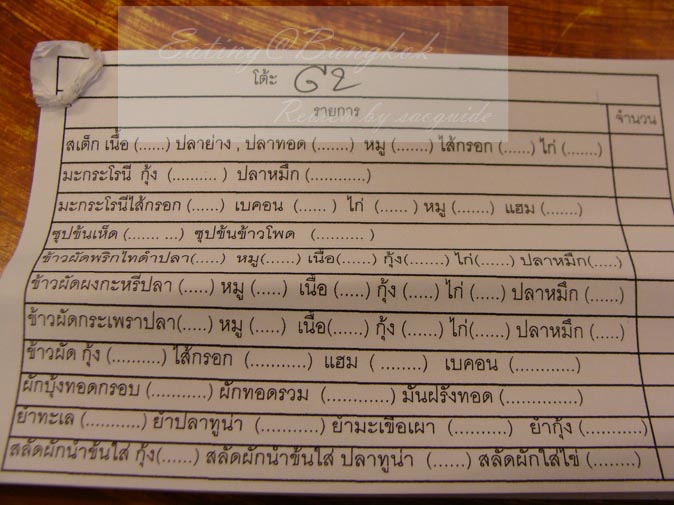 Eating@Bangkok
โต๊ะ ๘๖
Review by sacguide
รายการ จำนวน
สเต็ก เนื้อ (......) ปลาย่าง , ปลาทอด (.......) หมู (.......) ไส้กรอก (......) ไก่ (.......)
มะกะโรนี กุ้ง (......... ) ปลาหมึก (............)
มะกะโรนีไส้กรอก (......) เบคอน (...... ) ไก่ (...... ) หมู (.......) แฮม (.......)
ซุปข้นเห็ด (....... ...) ซุปข้นข้าวโพด (.......... )
ข้าวผัดพริกไทดำปลา(.....) หมู(......) เนื้อ(......) กุ้ง(.......) ไก่(......) ปลาหมึก(.....)
ข้าวผัดผงกะหรี่ปลา (.....) หมู (.....) เนื้อ (.....) กุ้ง (.....) ไก่ (.....) ปลาหมึก (.....)
ข้าวผัดกระเพราปลา(.....) หมู (.....) เนื้อ(......) กุ้ง (.....) ไก่(......) ปลาหมึก (.....)
ข้าวผัด กุ้ง (..........) ไส้กรอก (...........) แฮม ( ........) เบคอน (............)
ผักบุ้งทอดกรอบ (...........) ผักทอดรวม (............) มันฝรั่งทอด (..............)
ยำทะเล (...........) ยำปลาทูน่า (...........) ยำมะเขือเผา (..........) ยำกุ้ง (...........)
สลัดผักน้ำข้นใส่ กุ้ง(......) สลัดผักน้ำข้นใส่ ปลาทูน่า (......) สลัดผักใส่ไข่ (........)